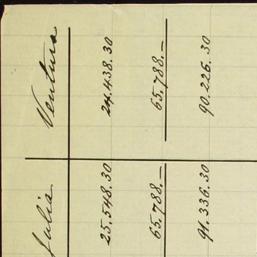 Julia Ventura
25.548.30 24.438.30
65.788.— 65.788.—
91.336.30 90.226.30